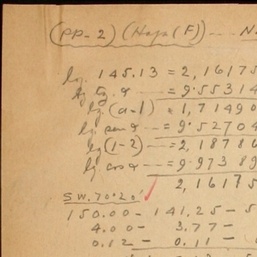 (PP-2) (Hops (F)) --- N.
lg. 145.13 = 2,16175
lg tg α = 9.55314
lg. (a-1) = 1,71490
lg. sen α --- = 9.52704
lg (1-2) --- = 2,18786
lg cos α --- = 9.97389
2,16175
S.W. 70°20'
150.00 - 141.25 - 5
4.00 - 3.77 -
0.12 - 0.11 - 0